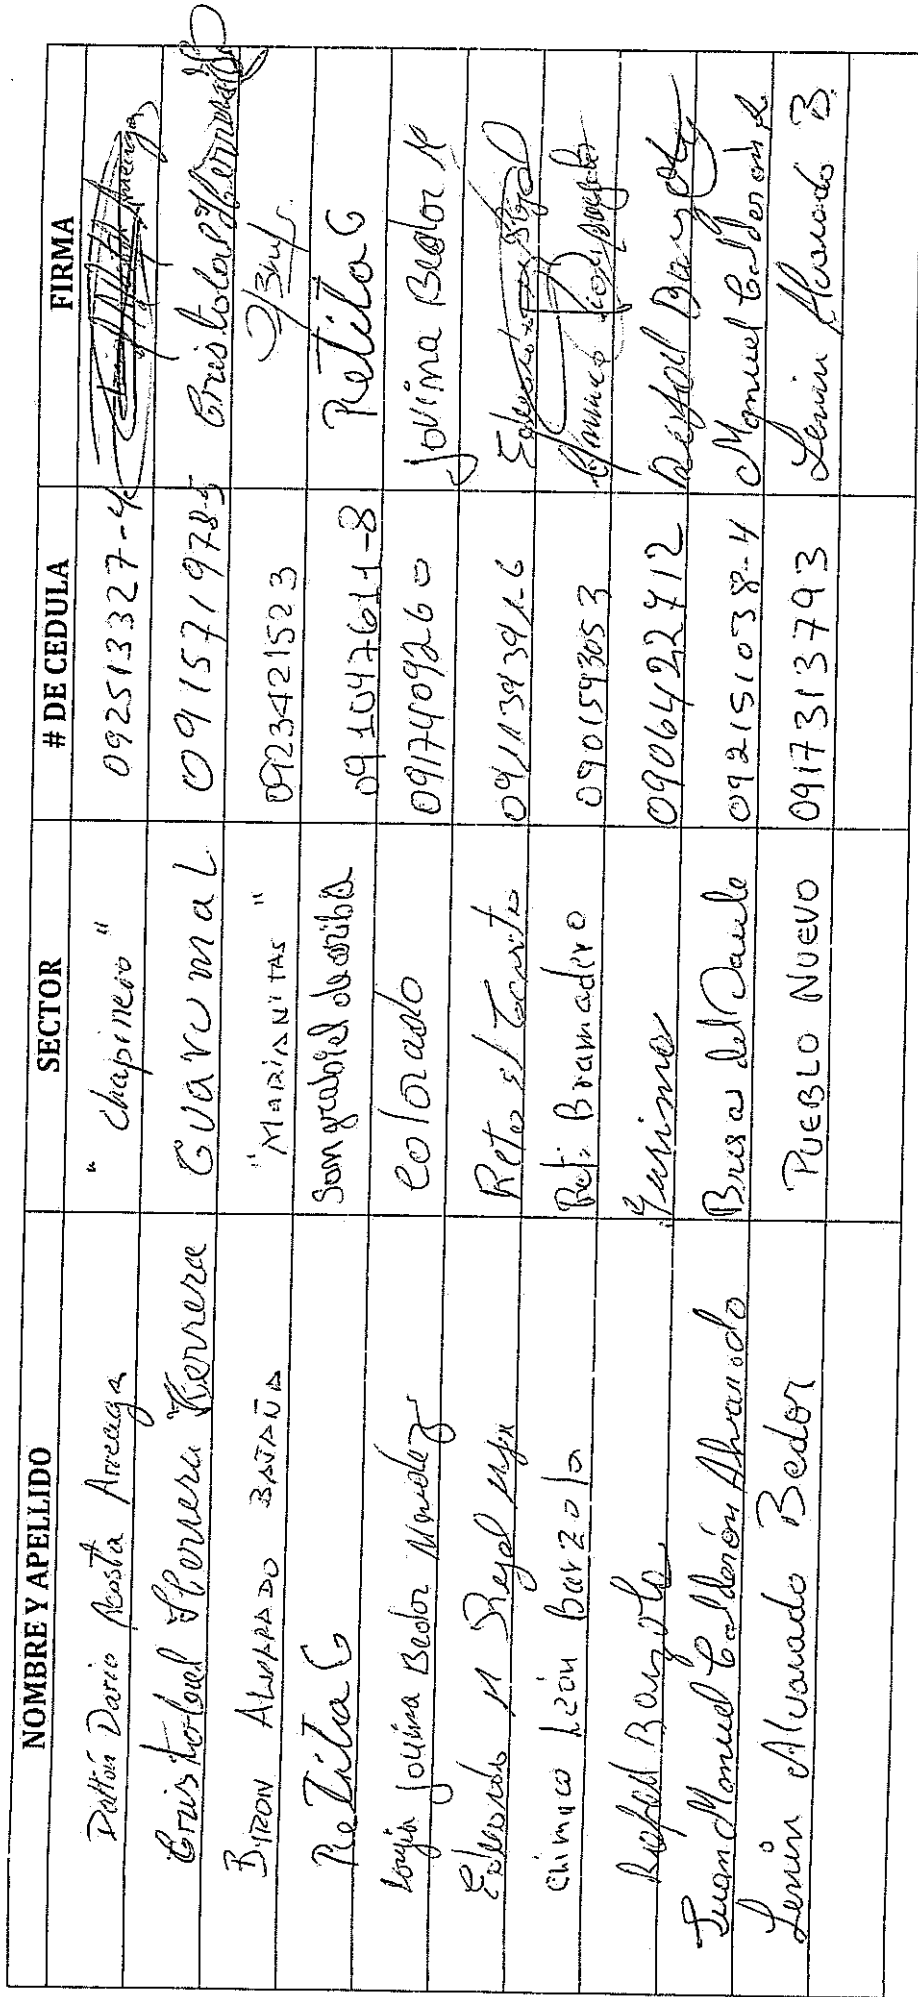 NOMBRE Y APELLIDO SECTOR # DE CEDULA FIRMA
Dario Acosta Arreaga "chapinero" 092513327-4
Cristobal Herrera Herrera Guarumal 0915719785 Cristobal Herrera
BYRON ALVARADO BAJAÑA "MARIANITAS" 0923421523
Petita C San grabiel de arriba 091047611-8 Petita C
Jovina Bedor Mendez Colorado 0917409260 Jovina Bedor M
Eduardo M Reto el 
Chimico León Barzola Ret: Bramadero 0901593053
Rafael Barzola 0906422712 Rafael Barzola
Juan Manuel Calderón Alvarado Brisas del Daule 092151038-4 Manuel Calderon A
Lenin Alvarado Bedor PUEBLO NUEVO 0917313793 Lenin Alvarado B.